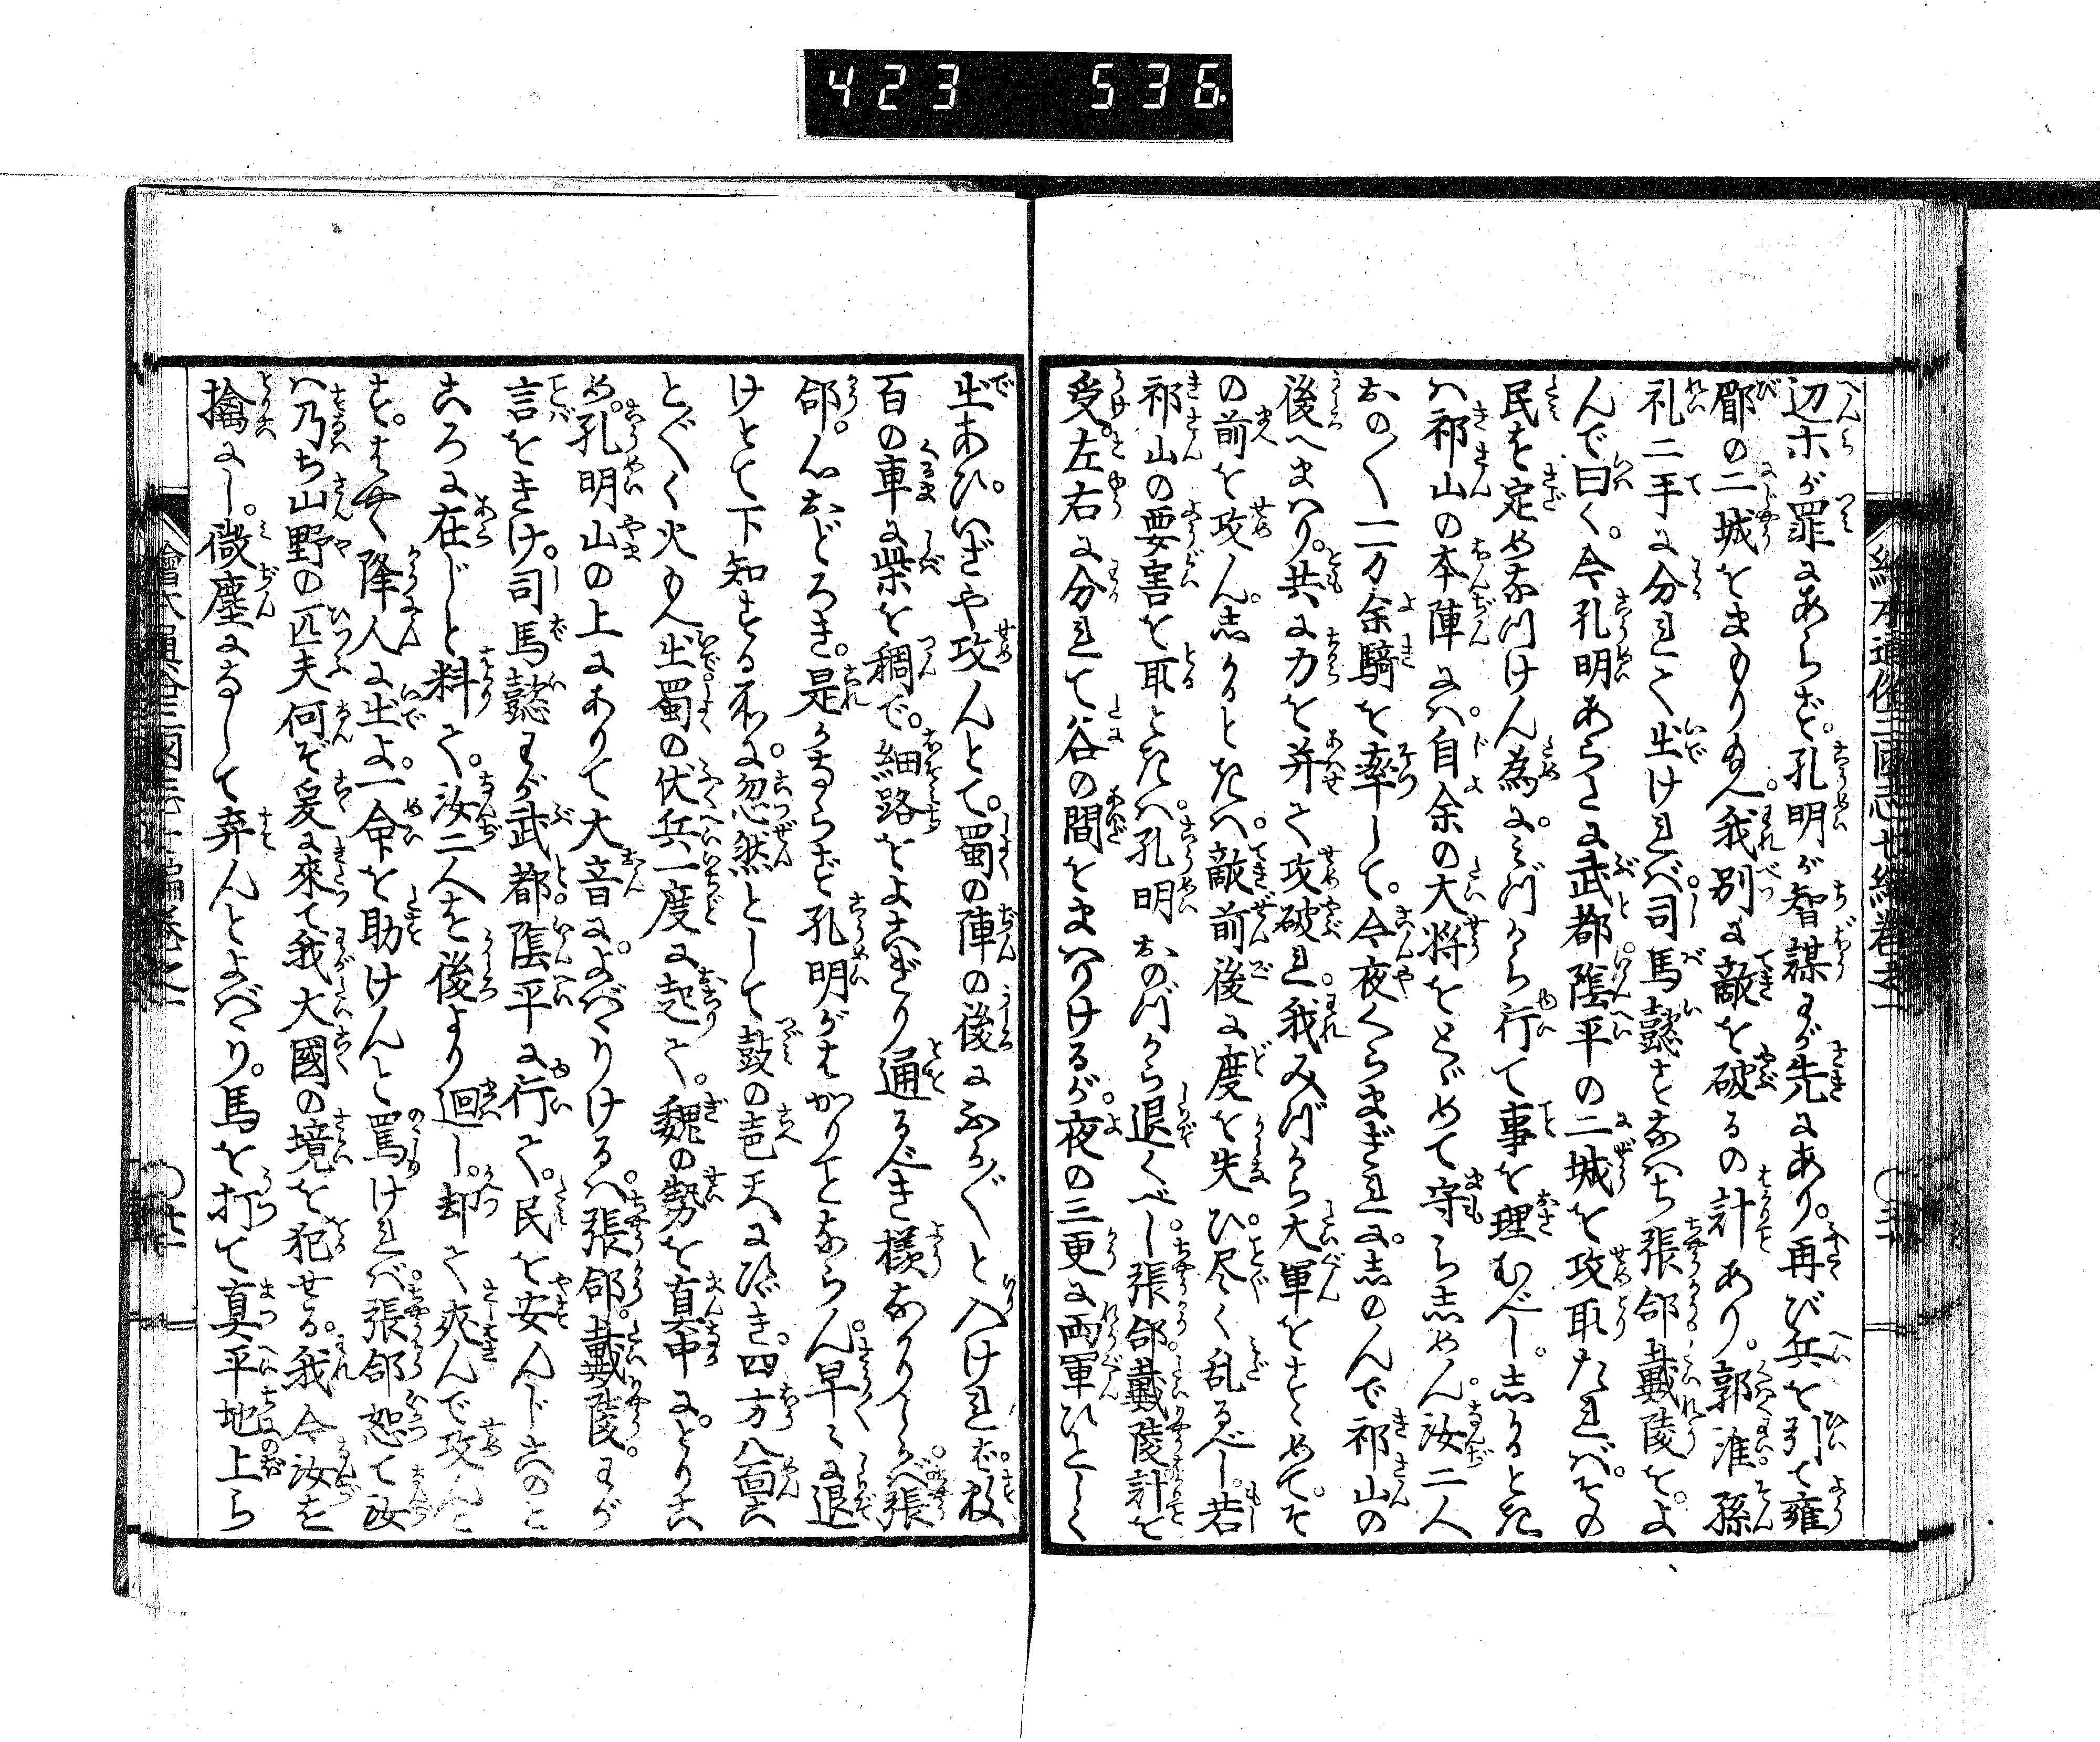 423 536
辺ホが罪にあらず。孔明が智謀わが先にあり。再び兵を引て雍
郿の二城をまもりゐ。我別に敵を破るの計あり。郭淮。孫
礼二手に分れて出ければ。司馬懿すなはち張郃戴陵を。よ
んで曰く。今孔明あらたに武都陰平の二城を攻取たれば。その
民を定めなつけん為に。みづから行て事を理むべし。しかるとき
ハ祁山の本陣にハ。自余の大将をとゞめて守らしめん。汝二人
おの〳〵一万余騎を率して。今夜くらまぎれに。しのんで祁山の
後へまハり。共に力を并せて攻破れ。我みづから大軍をすゝめて。そ
の前を攻ん。しかるときハ。敵前後に度を失ひ。尽く乱るべし。若
祁山の要害を取ときハ。孔明おのづから退くべし。張郃戴陵計を
受。左右に分れて谷の間をまハりけるが。夜の三更に両軍ひとしく
出あひ。いざや攻んとて。蜀の陣の後にふか〴〵と入ければ。数
百の車に柴を積で。細路をよこぎり通るべき様なかりしかば。張
郃。心おどろき。是かならず孔明がはかりことならん。早々に退
けとて下知する所に。忽然として鼓の声天にひゞき。四方八面こ
とごとく火もえ出。蜀の伏兵一度に起て。魏の勢を真中に。とりこ
め。孔明山の上にありて大音に。よばゝりけるハ。張郃。戴陵。わが
言をきけ。司馬懿わが武都。陰平に行て。民を安んじこのと
ころに在じと料て。汝二人を後より廻し。却て夾んで攻んと
す。はやく降人に出よ。一命を助けんと罵ければ。張郃恕て汝
ハ乃ち山野の匹夫何ぞ爰に来て我大國の境を犯せる。我今汝を
擒にし。微塵になして弃んとよばゝり。馬を打て真平地上ら